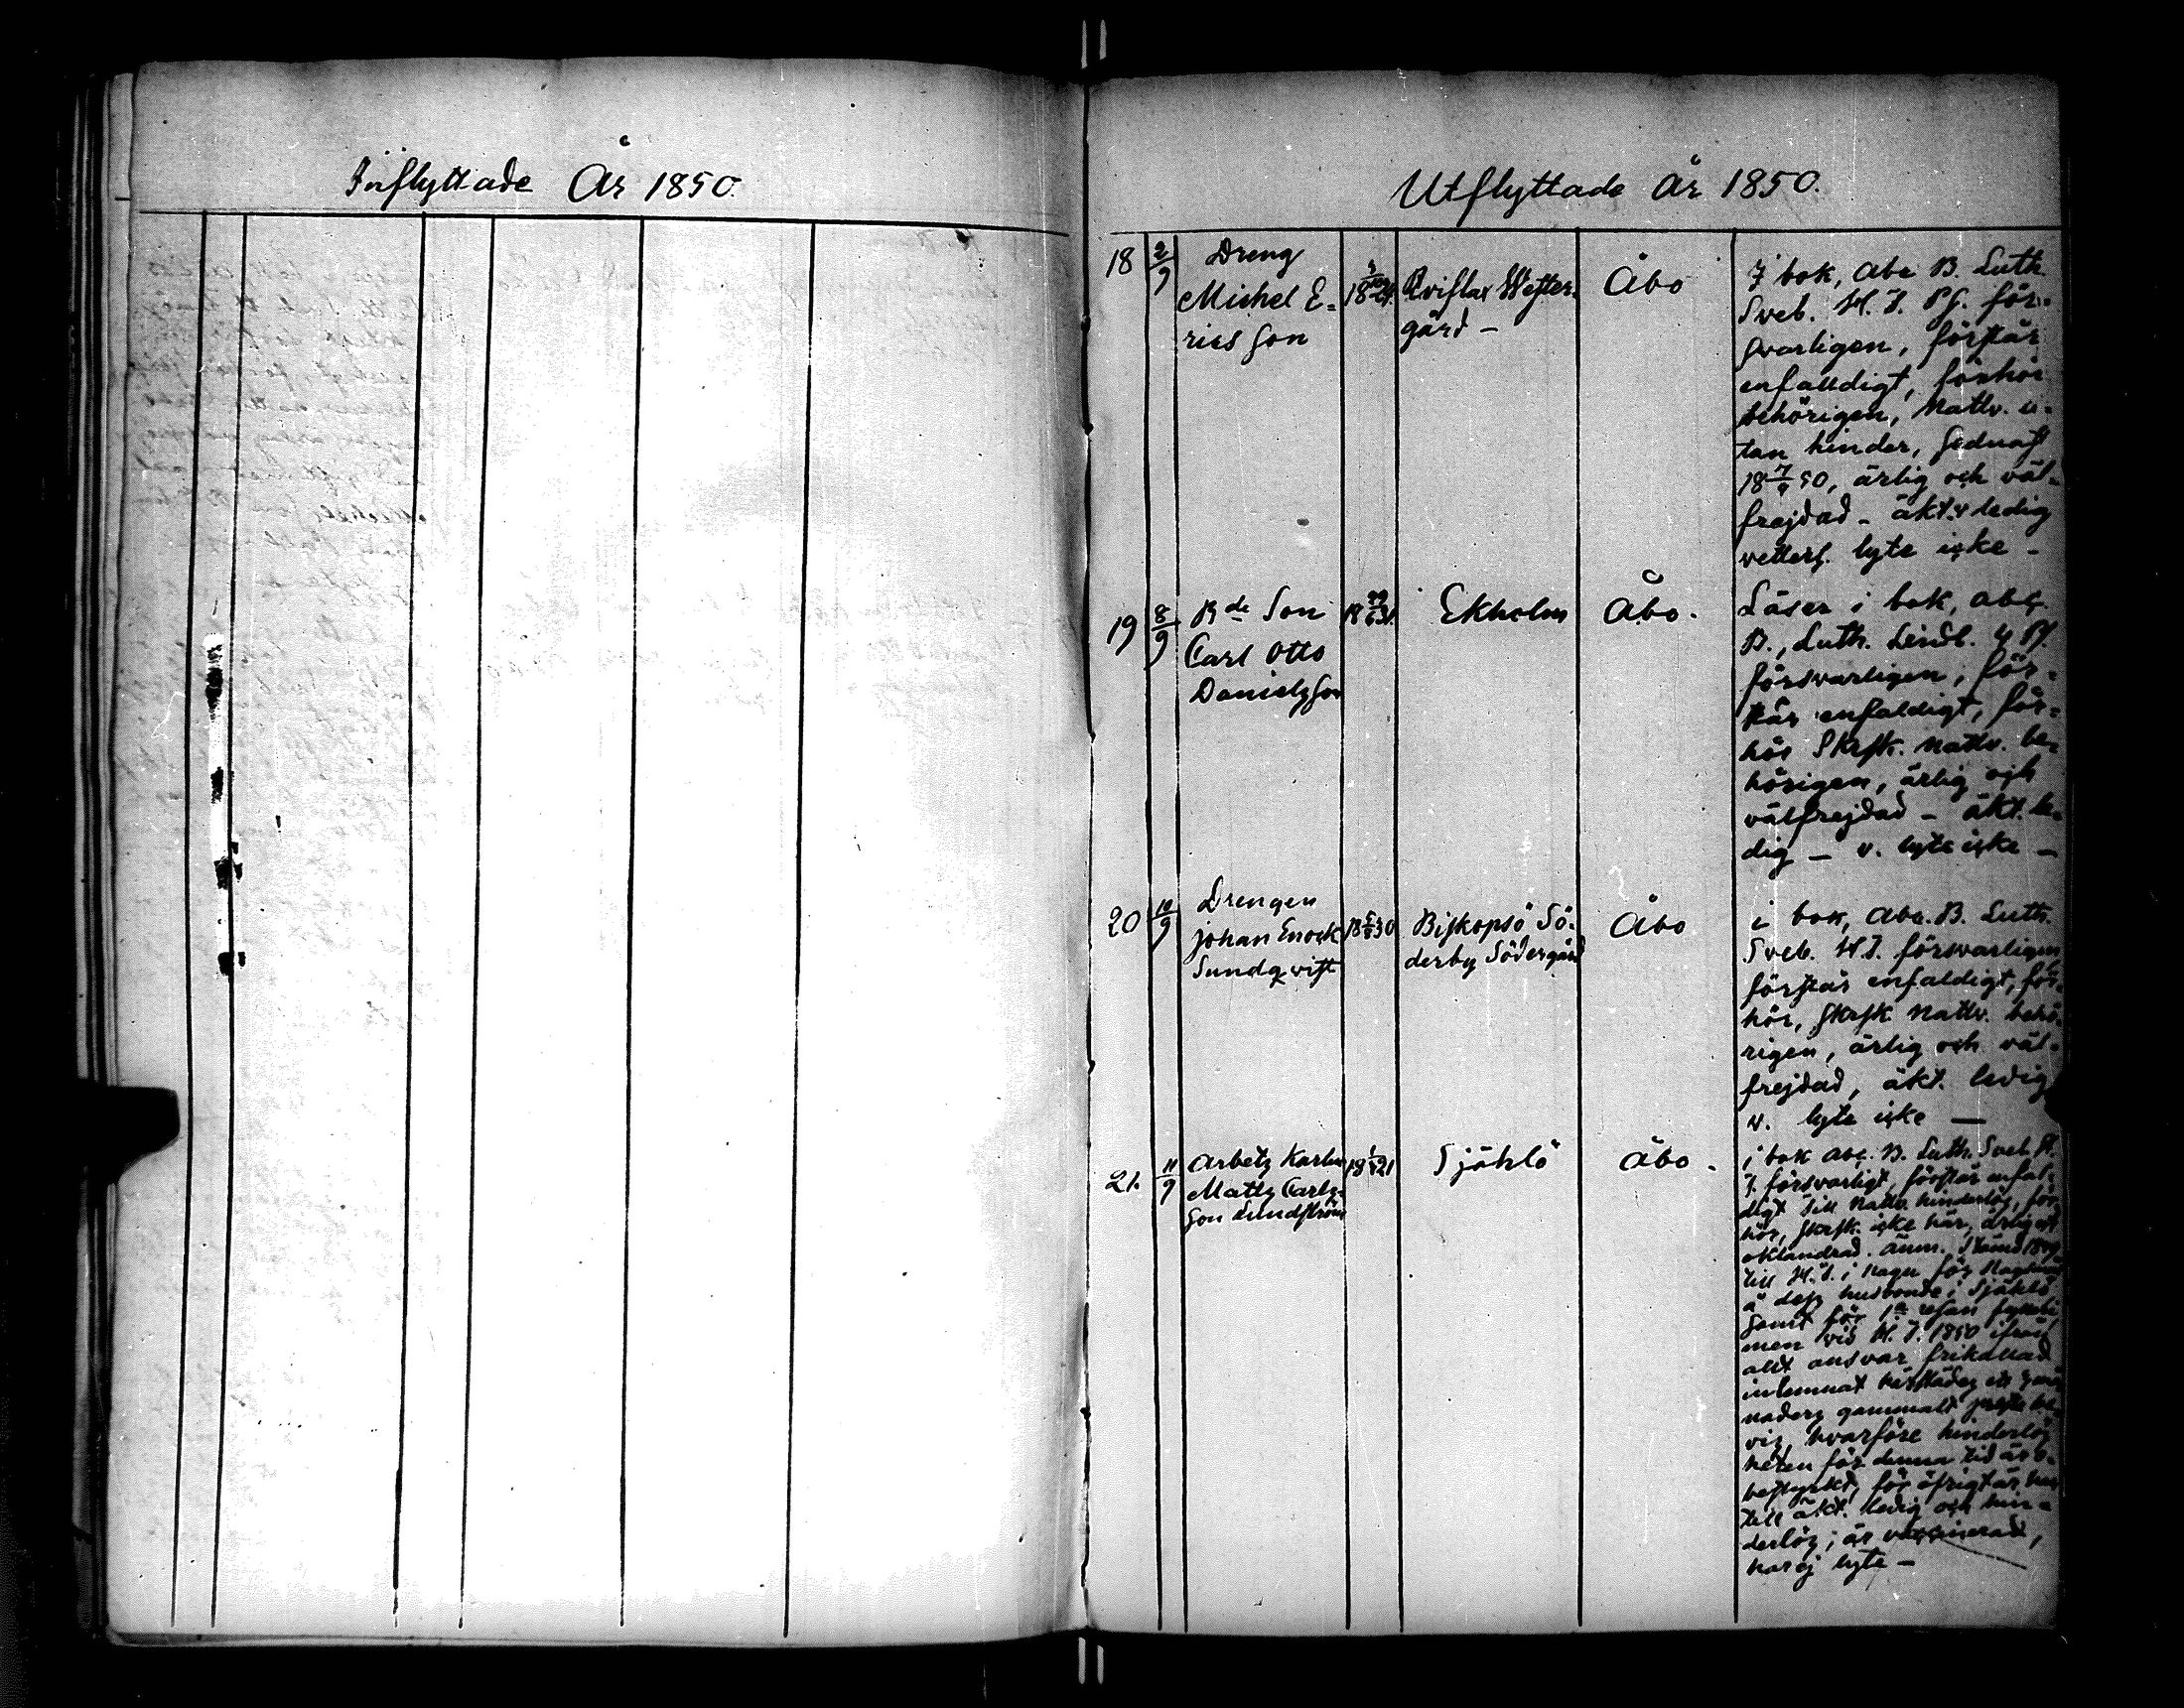 Inflyttade År 1850.
Utflyttade År 1850.
18 2/9 Dreng
Michel E-
ricsson
Qviflax Wester-
gård -
Åbo
I bok, abc B. Luth.
Sveb. H. T. Ps. för-
svarligen, förstår
enfalldigt, förhör
behörigen, Nattv. u-
tan hinder, sednast
18 7/9 50, ärlig och väl-
frejdad - äkt. v ledig
vetterl. lyte icke -
19 8/9 Bde Son
Carl Otto
Danielsson
Ekholm
Åbo.
Läser i bok, abc
B., Luth. Lindb. & Ps.
försvarligen, för-
står enfaldigt, för-
hör Skrft. Nattv. be-
hörigen, ärlig och
välfrejdad - äkt. le-
dig - v. lyte icke -
20 10/9 Drengen
Johan Enock
Sundqvist
18 30
Biskopsö Sö-
derby Södergård
Åbo
i bok, abc. B. Luth.
Sveb. H.T. försvarligen
förstår enfaldigt, för-
hör, skrft. Nattv. behö-
rigen, ärlig och väl-
frejdad, äkt. ledig
v. lyte icke -
21. 11/9 Arbets Karlen
Matts Carls-
son Lundström
18 21
Själö
Åbo.
i bok abc. B. Luth. Sveb. H.
T. försvarligt, förstår enfal-
digt till Nattv. hinderlös, för-
hör, skrft. icke här, ärlig och
oklandrad. anm. 1849
till H.T. i Nagu för
å dess husbonde i Själö
samt för 1a resan
men vid H. T. 1850 ifrån
allt ansvar frikallad
inlemnat
naders gammalt preste be-
vis, hvarföre hinderlös
heten för denna tid är o-
bestyrkt, för öfrigt är han
till äkt. ledig och hin-
derlös; är vaccinerad,
har ej lyte -